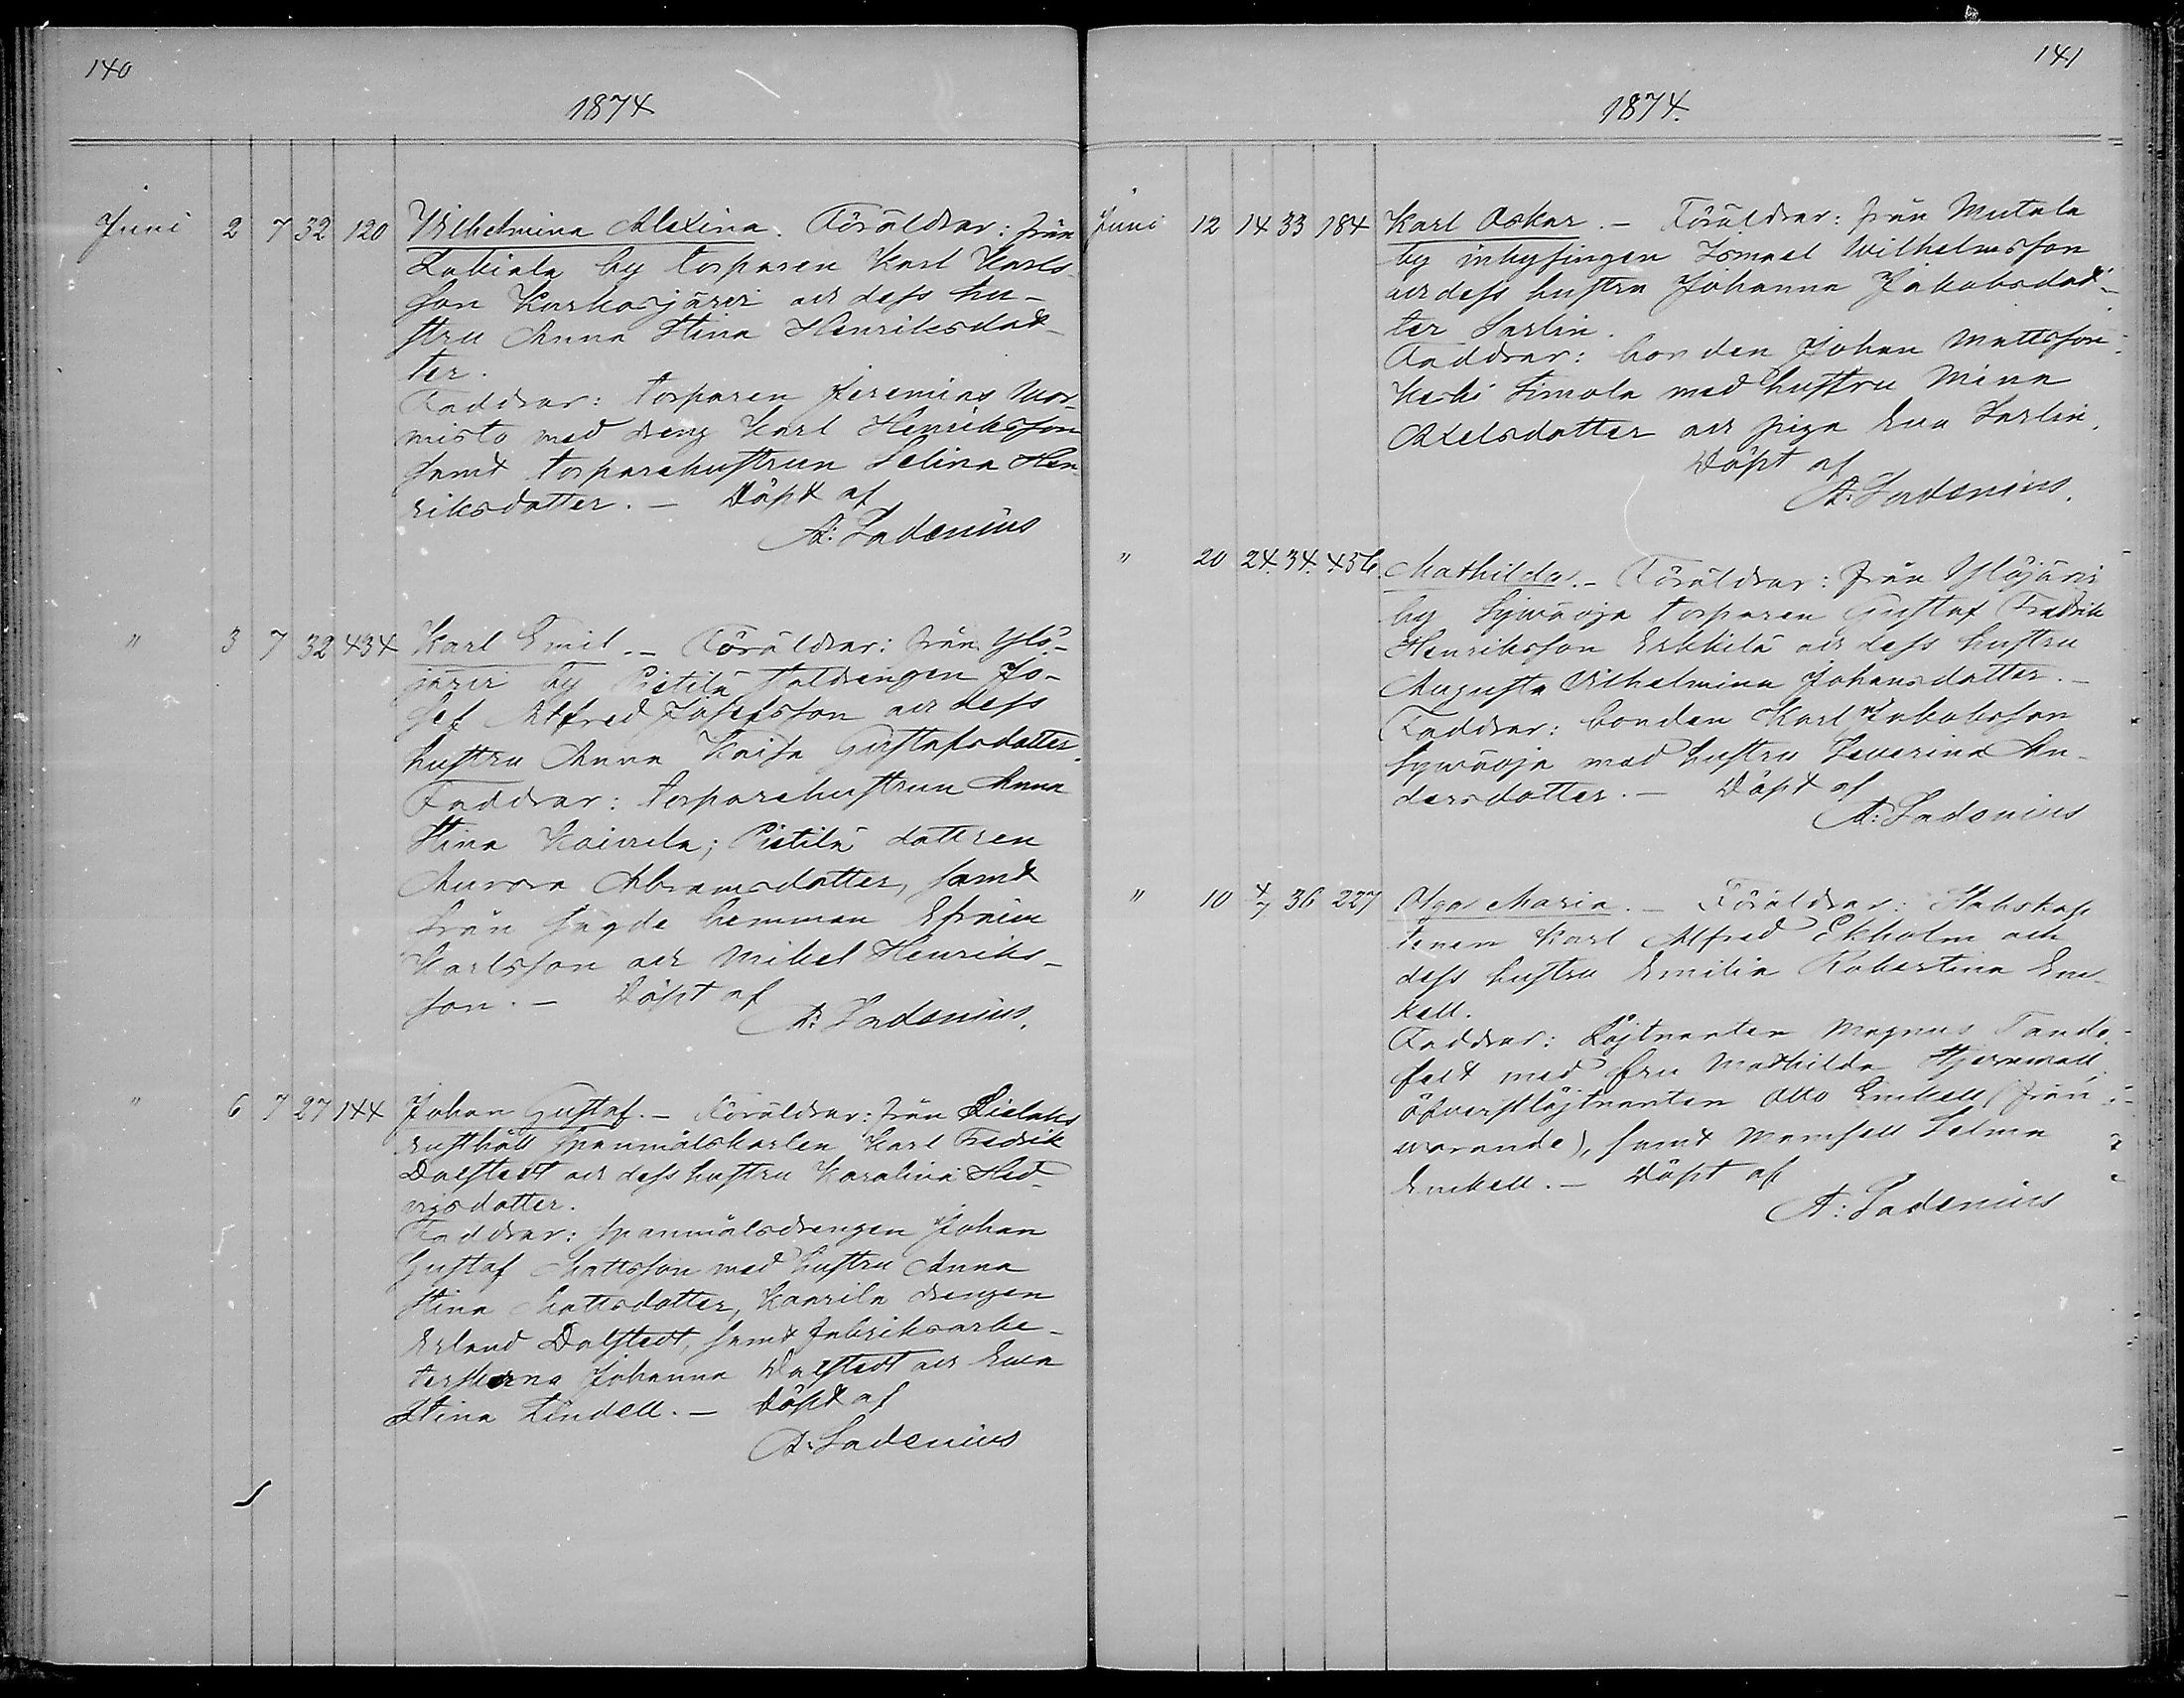 140
1874
Juni 2 7 32 120 Wilhelmina Alexina. Föräldrar: från
Lakiala by torparen Karl Karls-
son Karhasjärvi och dess hu-
stru Anna Stina Henriksdot-
ter.
Faddrar: torparen Jeremias Nor-
misto med dreng Karl Henriksson
samt torparehustrun Selina Hen-
riksdotter. — Döpt af
A: Ladenius
" 3 7 32 434 Karl Emil. — Föräldrar: från Ylö-
järvi by Pietilä statdrengen Jo-
sef Alfred Josefsson och dess
hustru Anna Kaisa Gustafsdotter.
Faddrar: torparehustrun Anna
Stina Koivula; Pietilä dottren
Aurora Abramsdotter, samt
från sagde hemman Efraim
Karlsson och Mikel Henriks-
son. — Döpt af
A: Ladenius.
" 6 7 27 144 Johan Gustaf. — Föräldrar: från Lielaks
rusthåll spanmålskarlen Karl Fredrik
Dalstedt och dess hustru Karolina Hed-
vigsdotter.
Faddrar: spanmålsdrengen Johan
Gustaf Mattsson med hustru Anna
Stina Mattsdotter, Kaarila drengen
Erland Dalstedt, samt fabriksarbe-
terskorna Johanna Dalstedt och Eva
Stina Lindell. — Döpt af
A: Ladenius
141
1874.
Juni 12 14 33 184 Karl Oskar. — Föräldrar: från Mutala
by inhysingen Ismael Wilhelmsson
och dess hustru Johanna Jakobsdot-
ter Sarlin.
Faddrar: bonden Johan Mattsson
Keski Simola med hustru Mina
Axelsdotter och piga Eva Sarlin.
Döpt af
A: Ladenius.
" 20 24. 34. 456. Mathilda. — Föräldrar: från Ylöjärvi
by Sywäoja torparen Gustaf Fredrik
Henriksson Erkkilä och dess hustru
Augusta Vilhelmina Johansdotter. —
Faddrar: bonden Karl Jakobsson
Sywäoja med hustru Severina An-
dersdotter. — Döpt af
A: Ladenius
" 10 4/7 36 227 Olga Maria. — Föräldrar: Stabskap-
tenen Karl Alfred Ekholm och
dess hustru Emilia Robertina En-
kell.
Faddrar: Löjtnanten Magnus Tande-
felt med fru Mathilda Stjernvall,
öfverstlöjtnanten Otto Enkell (från-
varande), samt Mamsell Selma
Enckell. — Döpt af
A: Ladenius